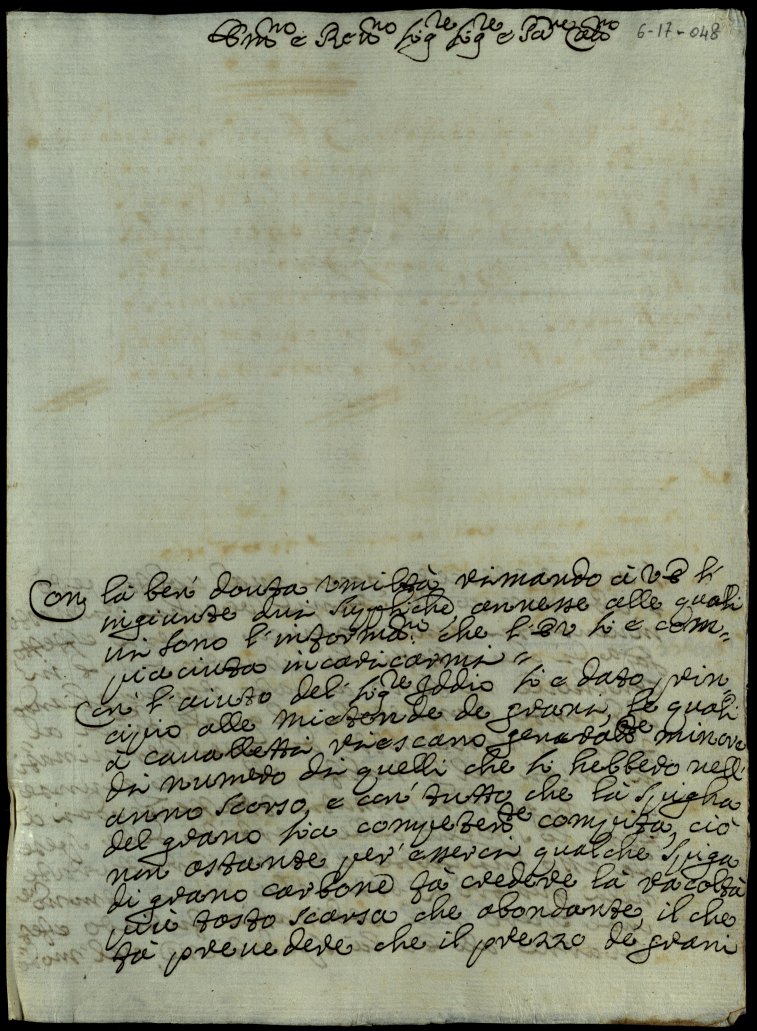 Em.mo e Rev.mo Sig.re Sig.re e Pa.ne Col.mo 6-17-048
Con la ben' douta umiltà rimando à VE l'
ingiunte dui suppliche, annesse alle quali
vi sono l'informa.ni che l'EV si è com=
piaciuta incaricarmi=
Con' l'aiuto del Sig.re Iddio si è dato prin=
cipio alle mietende de grani, le quali
à cavalletti riescano general.te minori
di numero di quelli che si hebbero nell'
anno scorso, e con' tutto che la spigha
del grano sia competen.te compita, ciò
non ostante per' esserci qualche spiga
di grano carbone fà credere la racolta
più tosto scarsa che abondante, il che
fà prevedere che il prezzo de grani